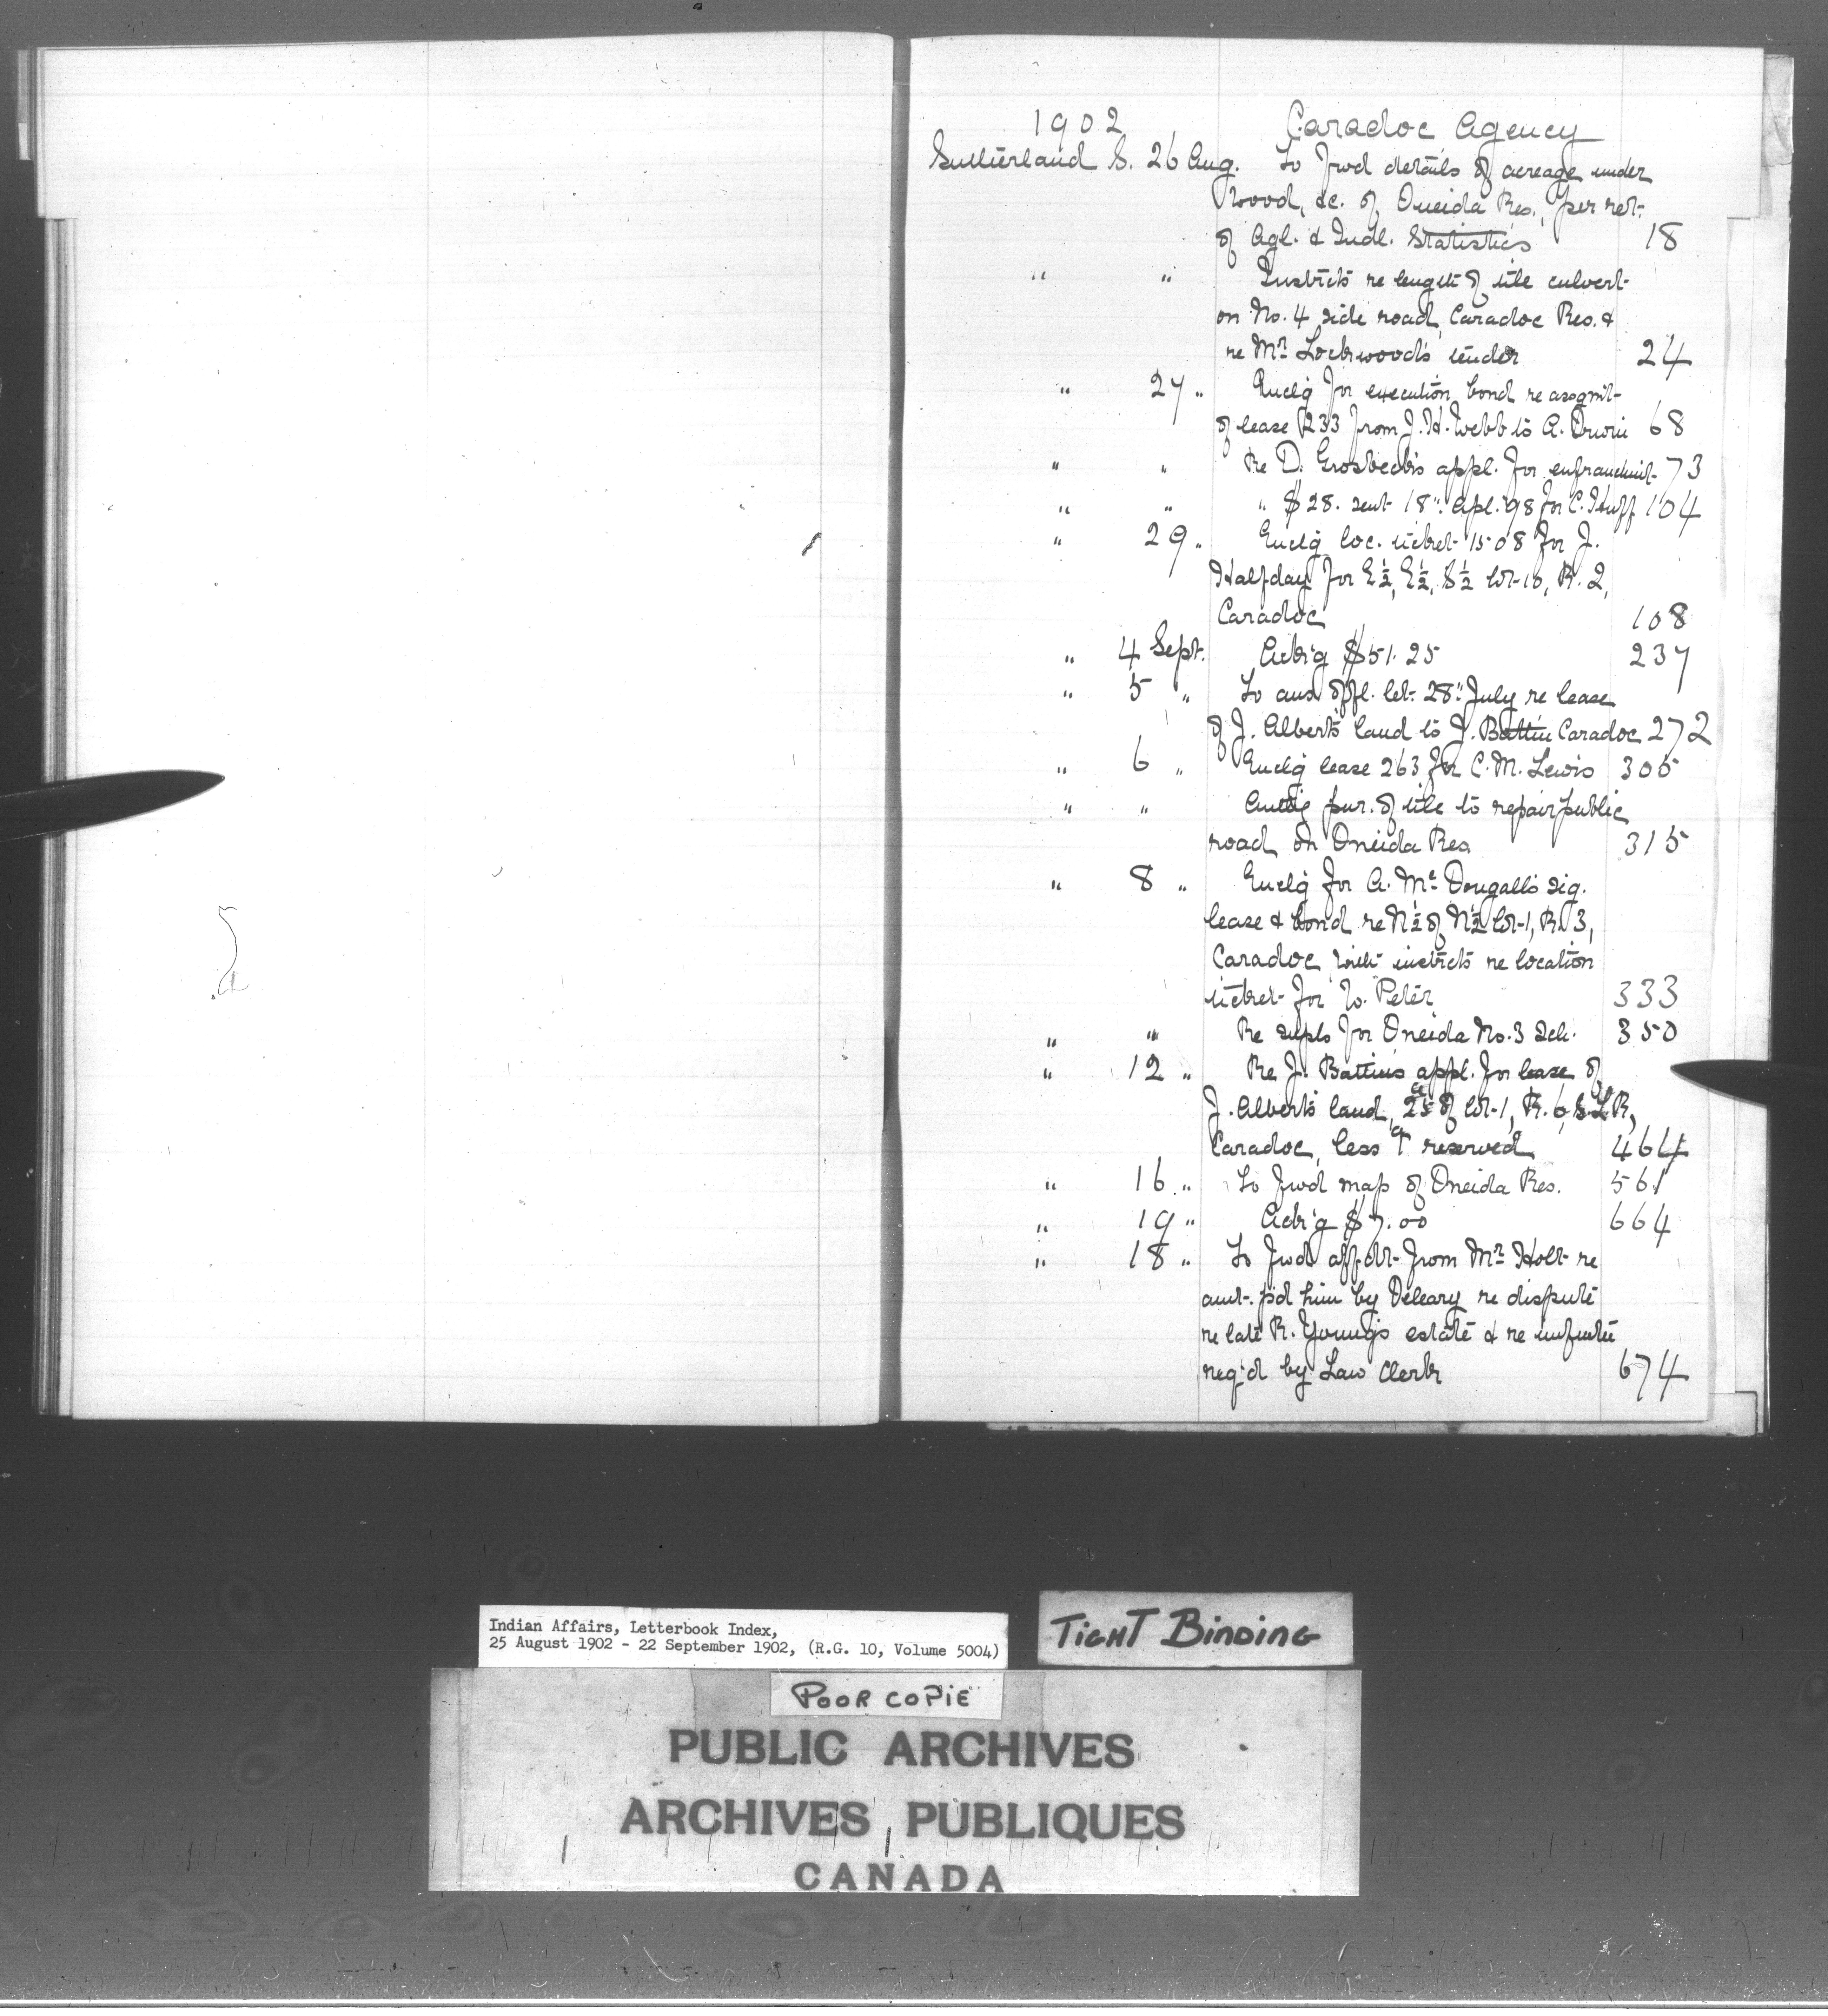 1902 Caradoc Agency
Sutherland S. 26 Aug. To fwd details of acreage under
wood, &c. of Oneida Res., per ret.
of Agl. & Indl. Statistics 18
" " Instrcts re length of tile culvert
on No. 4 side road, Caradoc Res. &
re Mr. Lockwood's tender 24
" 27 " Enclg for execution bond re assgmt
of lease 233 from J. H. Webb to A. Irwin 68
" " Re D. Grosbeck's appl. for enfranchmt 73
" " " $28. sent 18" Apl. '98 for C. Huff 104
" 29 " Enclg loc. ticket 1508 for J.
Halfday for E½, E½, S½ lot 10, R. 2,
Caradoc 108
" 4 Sept. Ackg $51.25 237
" 5 " To ans offl. let. 28" July re lease
of J. Albert's land to J. Battin Caradoc 272
" 6 " Enclg lease 263 for C. M. Lewis 305
" " Authg pur. of tile to repair public
road on Oneida Res 315
" 8 " Enclg for A. McDougall's sig.
lease & bond re N½ of N½ lot 1, R. 3,
Caradoc, with instrcts re location
ticket for W. Peter 333
" " Re supls for Oneida No. 3 Sch. 350
" 12 " Re J. Battin's appl. for lease of
J. Albert's land, 25a of lot 1, R. 6, S.L.R,
Caradoc, less 1a reserved 464
" 16 " To fwd map of Oneida Res. 561
" 19 " Ackg $7.00 664
" 18 " To fwd affdt from Mr. Holt re
amt. p'd him by Deleary re dispute
re late R. Young's estate & re
req'd by Law Clerk 674
Indian Affairs, Letterbook Index,
25 August 1902 - 22 September 1902, (R.G. 10, Volume 5004)
TIGHT BINDING
POOR COPIE
PUBLIC ARCHIVES
ARCHIVES PUBLIQUES
CANADA